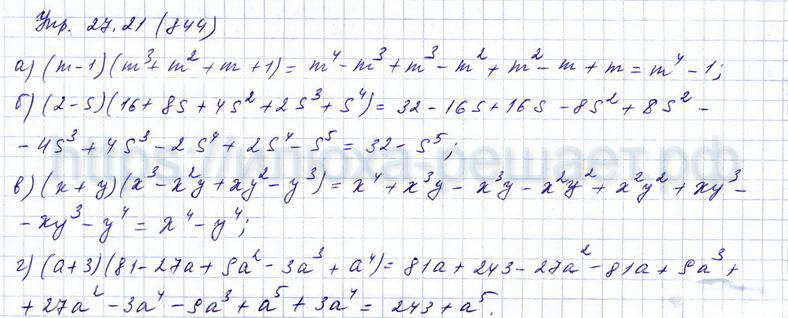 Упр. 27.21 (844)
а) (m-1)(m³+m²+m+1)=m⁴-m³+m³-m²+m²-m+m=m⁴-1;
б) (2-s)(16+8s+4s²+2s³+s⁴)=32-16s+16s-8s²+8s²-
-4s³+4s³-2s⁴+2s⁴-s⁵=32-s⁵;
в) (x+y)(x³-x²y+xy²-y³)=x⁴+x³y-x³y-x²y²+x²y²+xy³-
-xy³-y⁴=x⁴-y⁴;
г) (a+3)(81-27a+9a²-3a³+a⁴)=81a+243-27a²-81a+9a³+
+27a²-3a⁴-9a³+a⁵+3a⁴=243+a⁵.